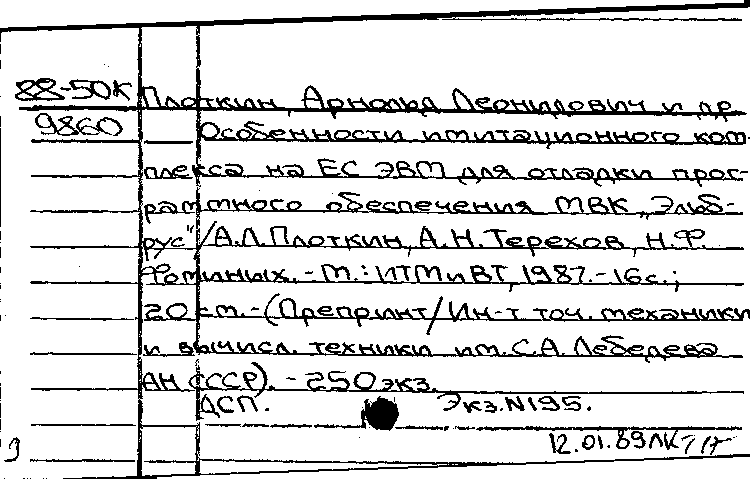 88-50К Плоткин, Арнольд Леонидович и др
9860 Особенности имитационного ком-
плекса на ЕС ЭВМ для отладки прог-
раммного обеспечения МВК „Эльб-
рус"/А.Л.Плоткин, А.Н.Терехов, Н.Ф.
Фоминых. - М.: ИТМиВТ, 1987. - 16с.;
20 см. - (Препринт/Ин-т точ. механики
и вычисл. техники им. С.А. Лебедева
АН СССР). - 250 экз.
ДСП. Экз.N195.
12.01.89
9